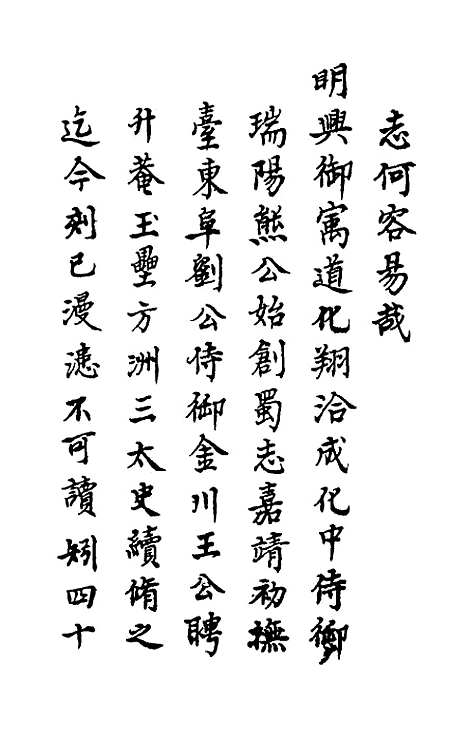 志何容易哉
明興御寓道化翔洽成化中侍御
瑞陽熊公始創蜀志嘉靖初撫
臺東阜劉公侍御金川王公聘
升菴玉壘方洲三太史續脩之
迄今刻已漫漶不可讀矧四十